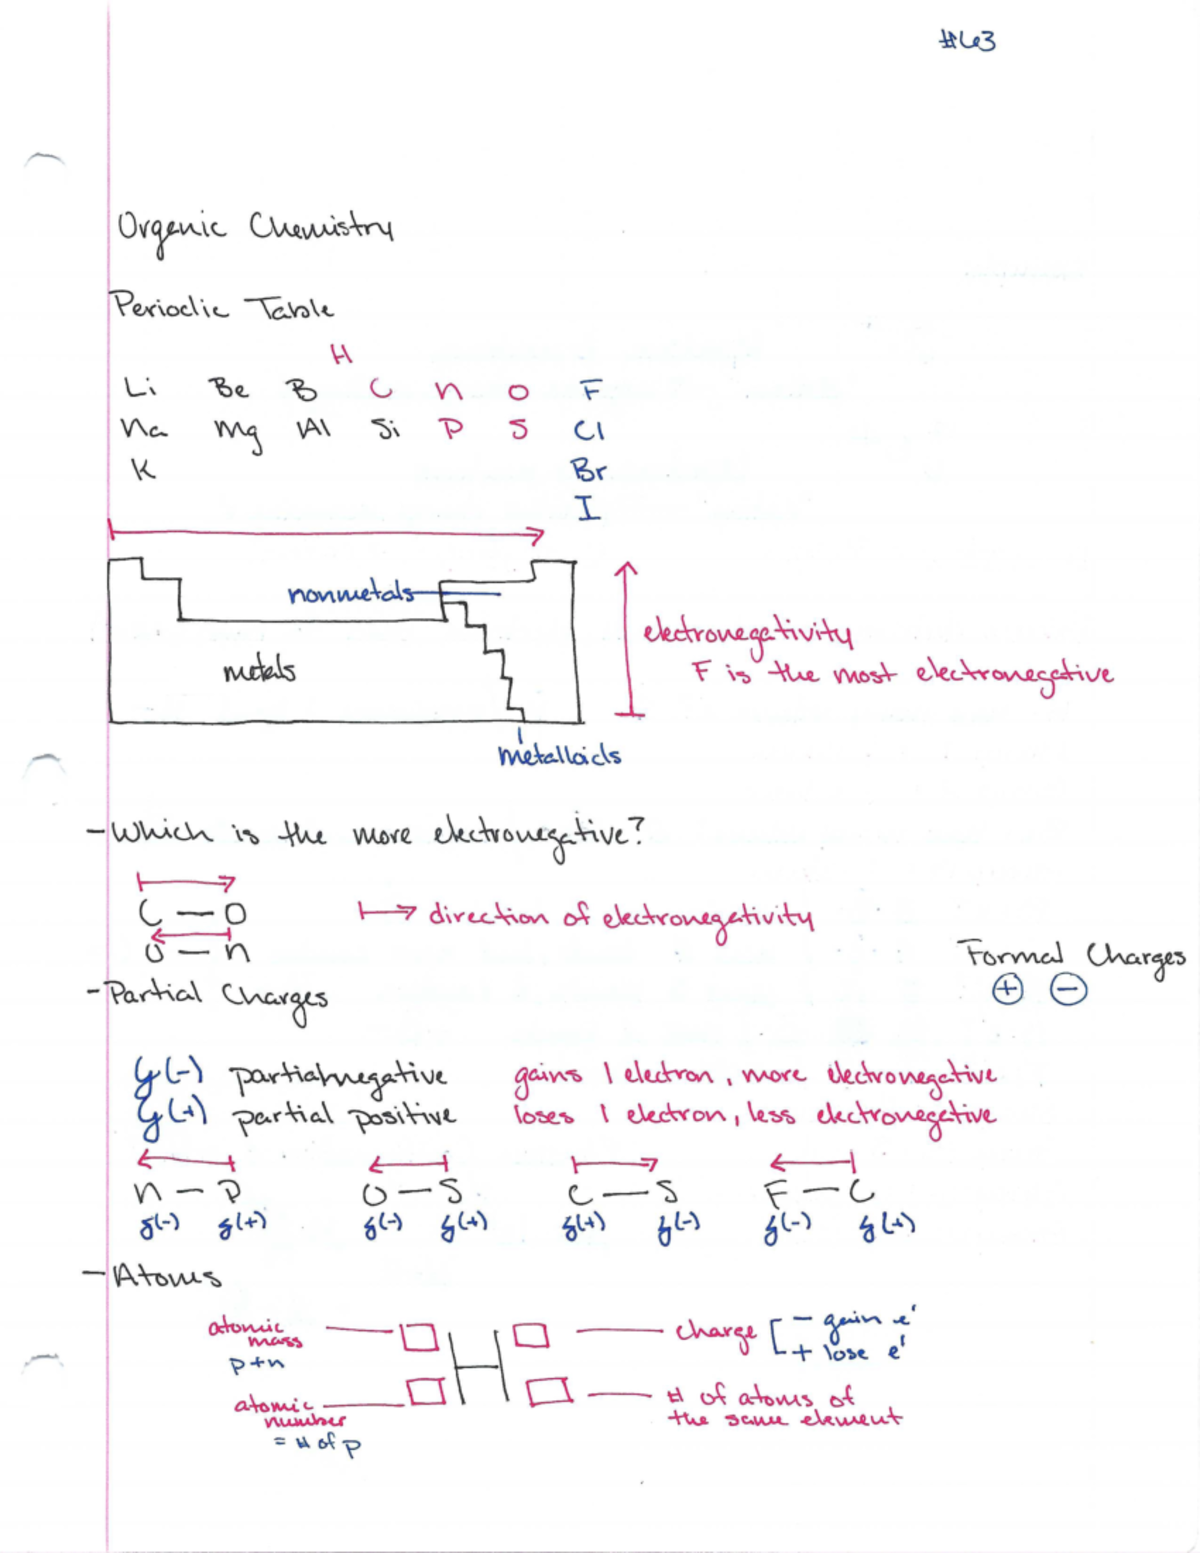 #63
Organic Chemistry
Periodic Table
H
Li Be B C N O F
Na Mg Al Si P S Cl
K Br
I
nonmetals
metals
electronegativity
F is the most electronegative
metalloids
- Which is the more electronegative?
C — O
↦ direction of electronegativity
O — N
Formal Charges
⊕ ⊖
- Partial Charges
δ(-) partial negative gains 1 electron, more electronegative
δ(+) partial positive loses 1 electron, less electronegative
N — P O — S C — S F — C
δ(-) δ(+) δ(-) δ(+) δ(+) δ(-) δ(-) δ(+)
- Atoms
atomic mass
p+n
H
charge [ - gain e⁻
+ lose e⁻
atomic number
= # of p
# of atoms of
the same element